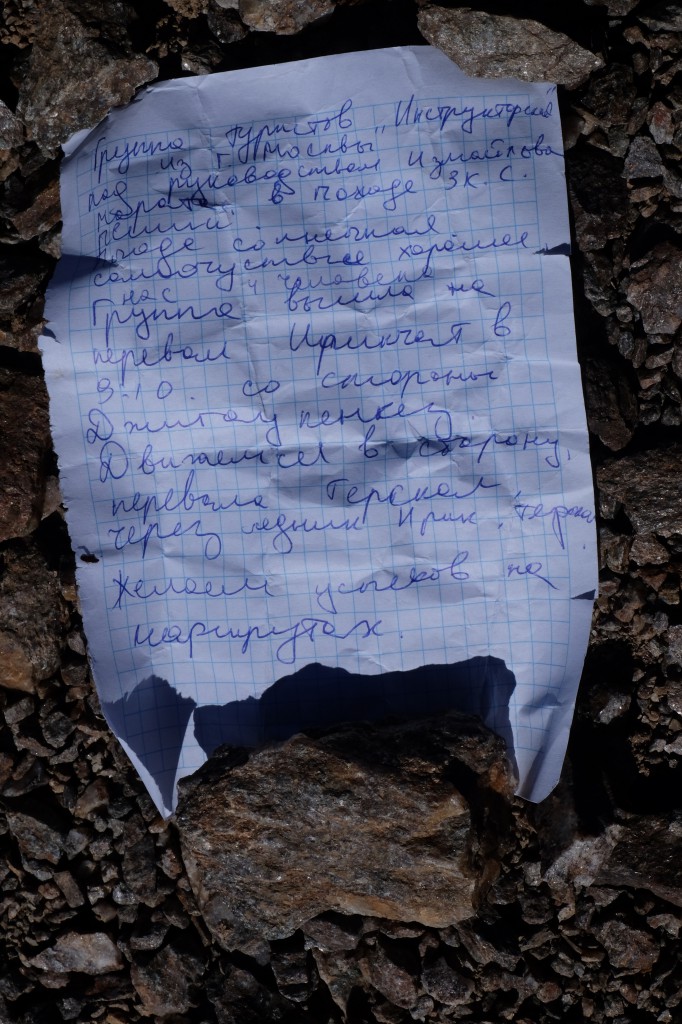 Группа туристов „Инструкторская“
из г. Москвы
под руководством Измайлова
Марата в походе 3 к.с.
пешки.
погода солнечная
самочуствие хорошее
нас 4 человека
Группа вышла на
перевал Ирикчат в
9.10. со стороны
Джитолу
Движемся в сторону
перевала Терскол
через ледник Ирик.
Желаем успехов на
маршрутах.